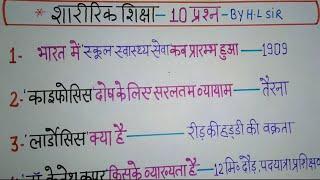 * शारीरिक शिक्षा - 10 प्रश्न - BY H.L SIR
1- भारत में स्कूल स्वास्थ्य सेवा कब प्रारम्भ हुआ — 1909
2- 'काइफोसिस' दोष के लिए सरलतम व्यायाम — तैरना
3- 'लार्डोसिस' क्या है — रीड़ की हड्डी की वक्रता
किसके व्याख्याता है - 12 मि० दौड़, पदयात्रा